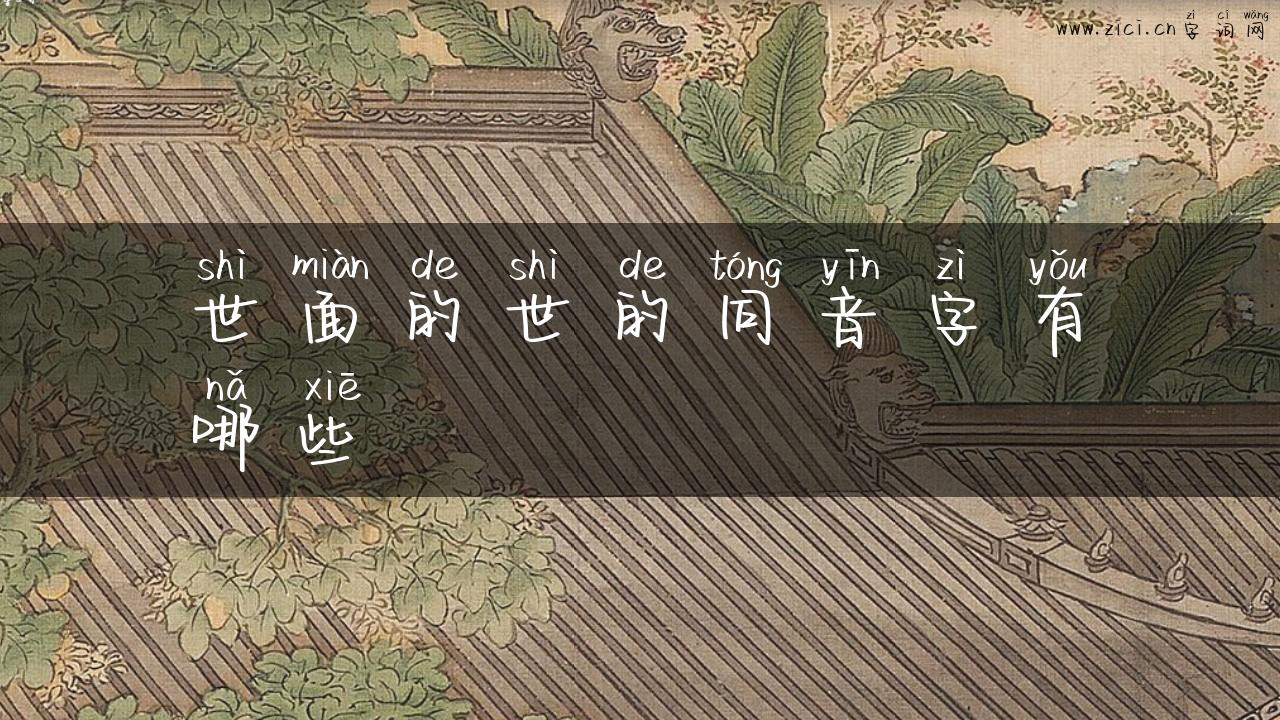 zì cí wǎng
www.zici.cn 字词网
shì miàn de shì de tóng yīn zì yǒu
世面的世的同音字有
nǎ xiē
哪些